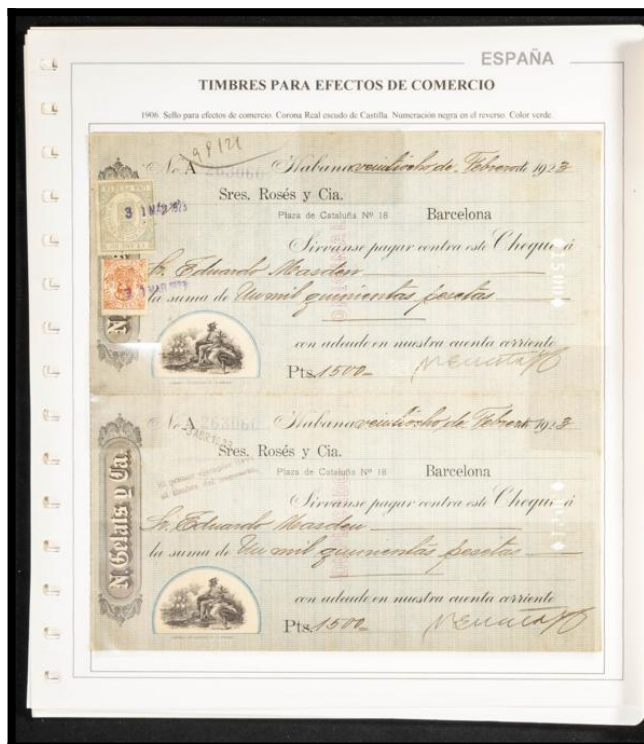 ESPAÑA
TIMBRES PARA EFECTOS DE COMERCIO
1906. Sello para efectos de comercio. Corona Real escudo de Castilla. Numeración negra en el reverso. Color verde.
98121
No. A 263060 Habana veintiocho de Febrero de 1923
Sres. Rosés y Cia.
Plaza de Cataluña Nº 18 Barcelona
Sirvanse pagar contra este Cheque á
3 1 MAR 1923
Sr. Eduardo Masdeu
la suma de Un mil quinientas pesetas
con adeudo en nuestra cuenta corriente
Pts. 1500-
No. A 263060 Habana veintiocho de Febrero de 1923
Sres. Rosés y Cia.
Plaza de Cataluña Nº 18 Barcelona
Sirvanse pagar contra este Cheque á
N. Gelats y Ca.
Sr. Eduardo Masdeu
la suma de Un mil quinientas pesetas
con adeudo en nuestra cuenta corriente
Pts. 1500-